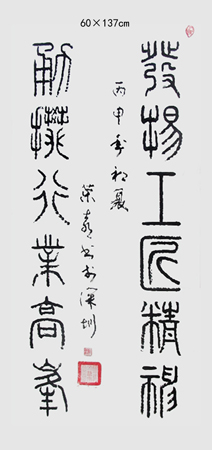 60×137cm
發揚工匠精神
勇攀行業高峯
丙申年初夏
书於深圳